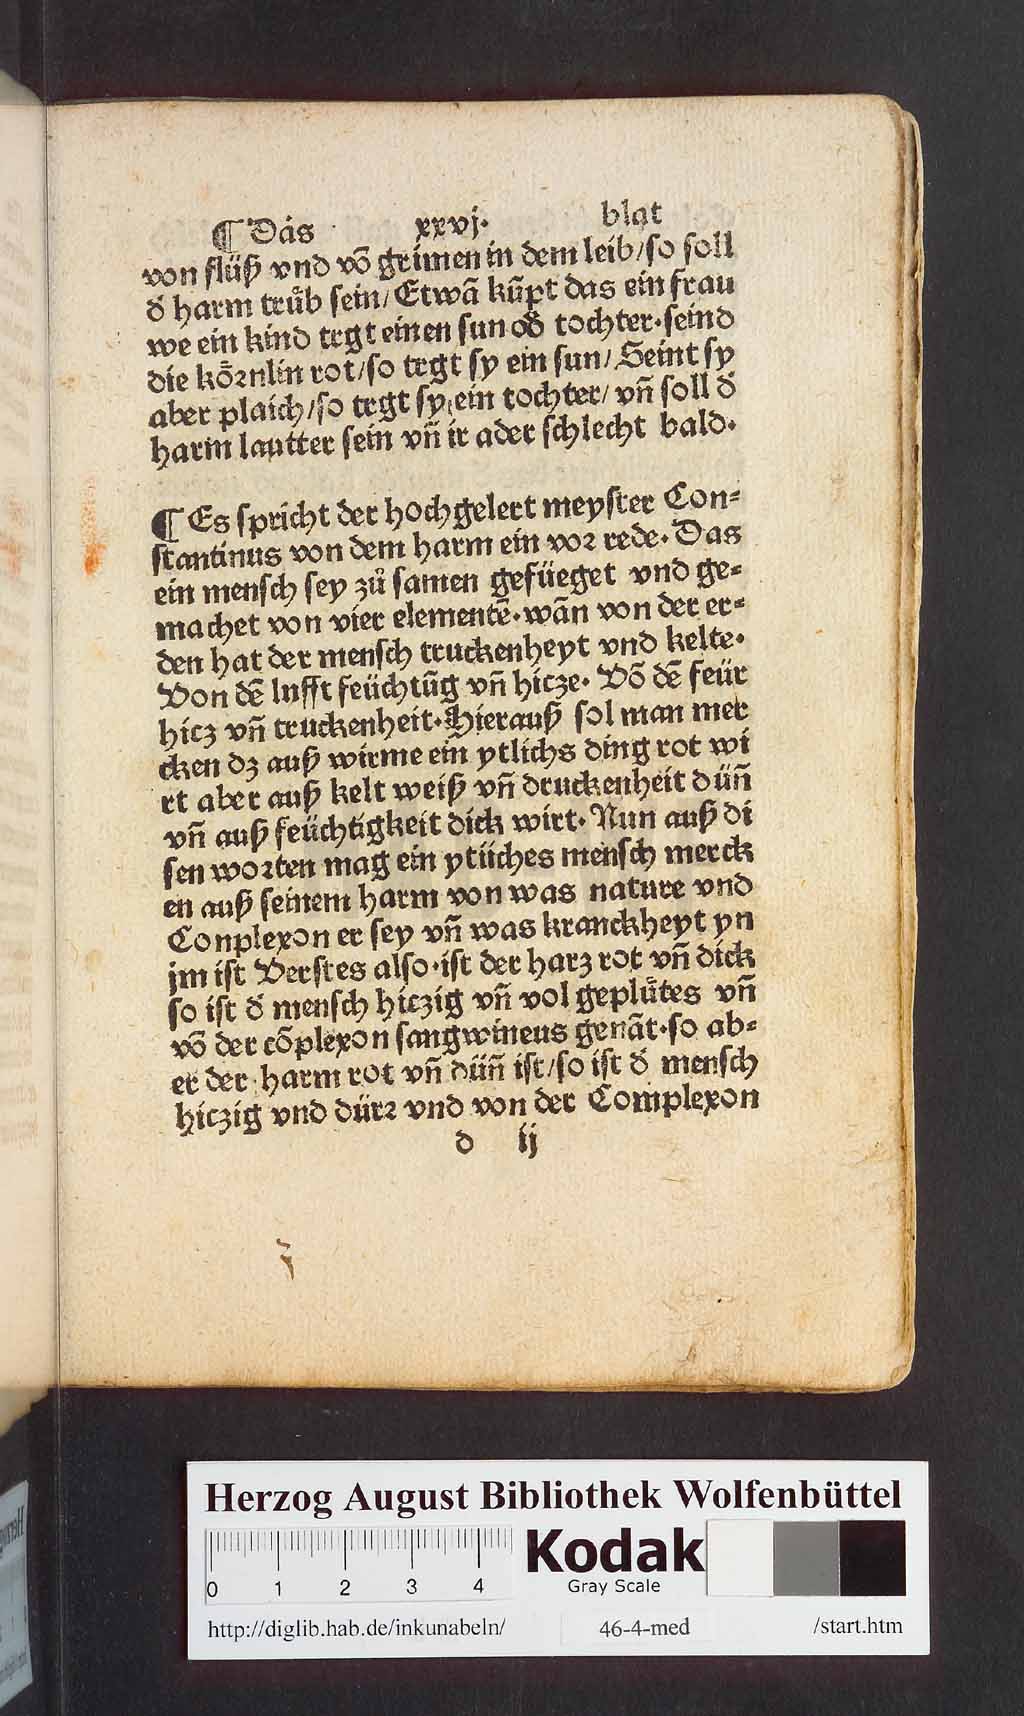 ¶ Das xxvj. blat
von flüß vnd võ grimen in dem leib/so soll
d̕ harm truͤb sein/Etwã kũpt das ein frau
we ein kind tregt einen sun od̕ tochter·seind
die koͤꝛnlin rot/so tregt sy ein sun/Seint sy
aber plaich/so tregt sy ein tochter/vñ soll d̕
harm lautter sein vñ ir ader schlecht bald·
¶ Es spricht der hochgelert meyster Con⸗
stantinus von dem harm ein voꝛ rede·Das
ein mensch sey zuͦ samen gefüeget vnd ge⸗
machet von vier elementẽ·wãn von der er⸗
den hat der mensch truckenheyt vnd kelte·
Von dẽ lufft feüchtũg vñ hicze·Võ dẽ feür
hicz vñ truckenheit·Hierauß sol man mer
cken dz auß wirme ein ytlichs ding rot wi
rt aber auß kelt weiß vñ druckenheit düñ
vñ auß feüchtigkeit dick wirt·Nun auß di
sen woꝛten mag ein ytliches mensch merck
en auß seinem harm von was nature vnd
Conplexon er sey vñ was kranckheyt yn
jm ist Verstes also·ist der harz rot vñ dick
so ist d̕ mensch hiczig vñ vol gepluͤtes vñ
võ der cõplexon sangwineus genãt·so ab⸗
er der harm rot vñ düñ ist/so ist d̕ mensch
hiczig vnd dürꝛ vnd von der Complexon
d ij
Herzog August Bibliothek Wolfenbüttel
0 1 2 3 4
Kodak
Gray Scale
http://diglib.hab.de/inkunabeln/ 46-4-med /start.htm